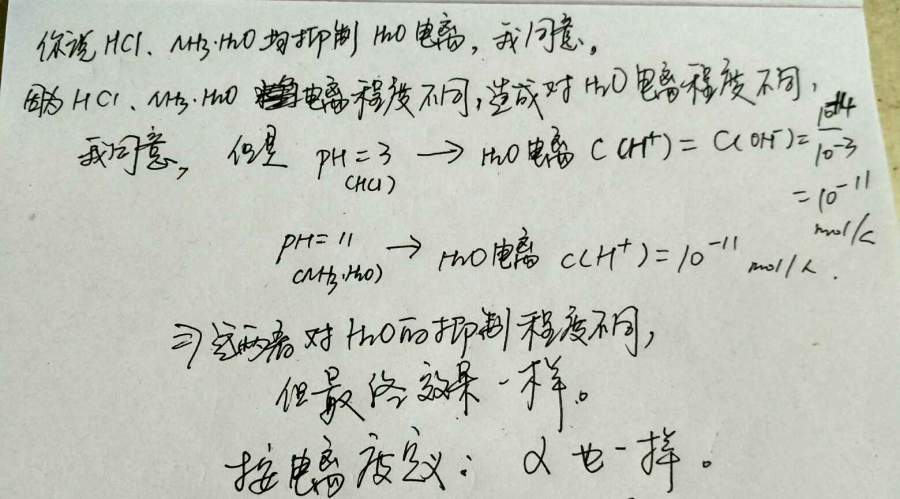 你说 HCl、NH3·H2O 均抑制 H2O 电离，我同意。
因为 HCl、NH3·H2O 电离程度不同，造成对 H2O 电离程度不同，
我同意，但是 pH=3 (HCl) → H2O 电离 C(H⁺) = C(OH⁻) = 10⁻¹⁴/10⁻³
= 10⁻¹¹
mol/L
pH=11 (NH3·H2O) → H2O 电离 C(H⁺) = 10⁻¹¹ mol/L.
⇒ 这两者对 H2O 的抑制程度不同，
但最终效果一样。
按电离度定义：α 也一样。